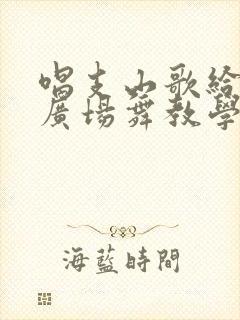 唱支山歌給
廣場舞教學
海藍時間